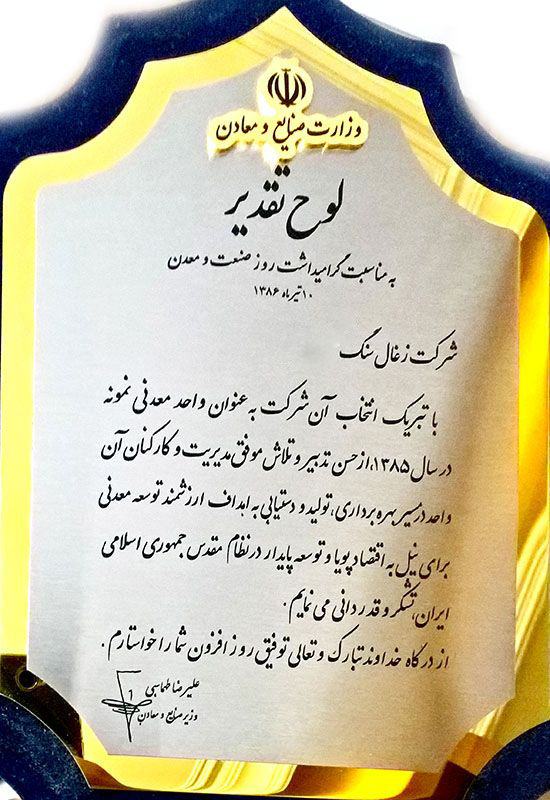 وزارت صنایع و معادن
لوح تقدیر
به مناسبت گرامیداشت روز صنعت و معدن
۱۰ تیرماه ۱۳۸۶
شرکت زغال سنگ
با تبریک انتخاب آن شرکت به عنوان واحد معدنی نمونه
در سال ۱۳۸۵، از حسن تدبیر و تلاش موفق مدیریت و کارکنان آن
واحد در مسیر بهره برداری، تولید و دستیابی به اهداف ارزشمند توسعه معدنی
برای نیل به اقتصاد پویا و توسعه پایدار در نظام مقدس جمهوری اسلامی
ایران، تشکر و قدردانی می نمایم.
از درگاه خداوند تبارک و تعالی توفیق روز افزون شما را خواستارم.
علیرضا طهماسبی
وزیر صنایع و معادن